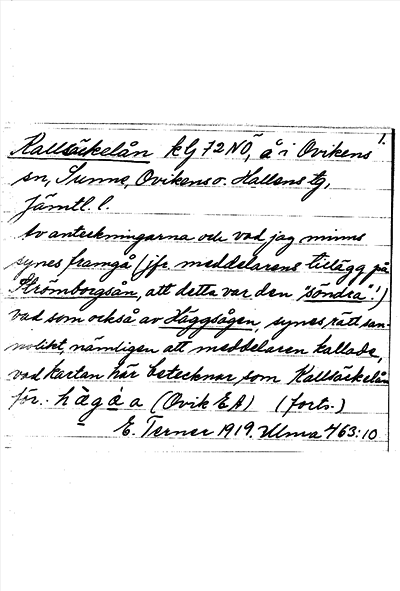 1.
Kallsäckelån kG 72 NÖ, å i Ovikens
sn, Sunne, Ovikens o. Hallens tg,
Jämtl. l.
Av anteckningarna och vad jag minns
synes framgå (jfr meddelarens tillägg på
Strömborgsån, att detta var den "söndra"!)
vad som också av Häggsågen, synes rätt san-
nolikt, nämligen att meddelaren kallade,
vad kartan här betecknar som Kallsäckelån
för: (Ovik E A) (forts.)
E. Terner 1919. Ulma 763:10